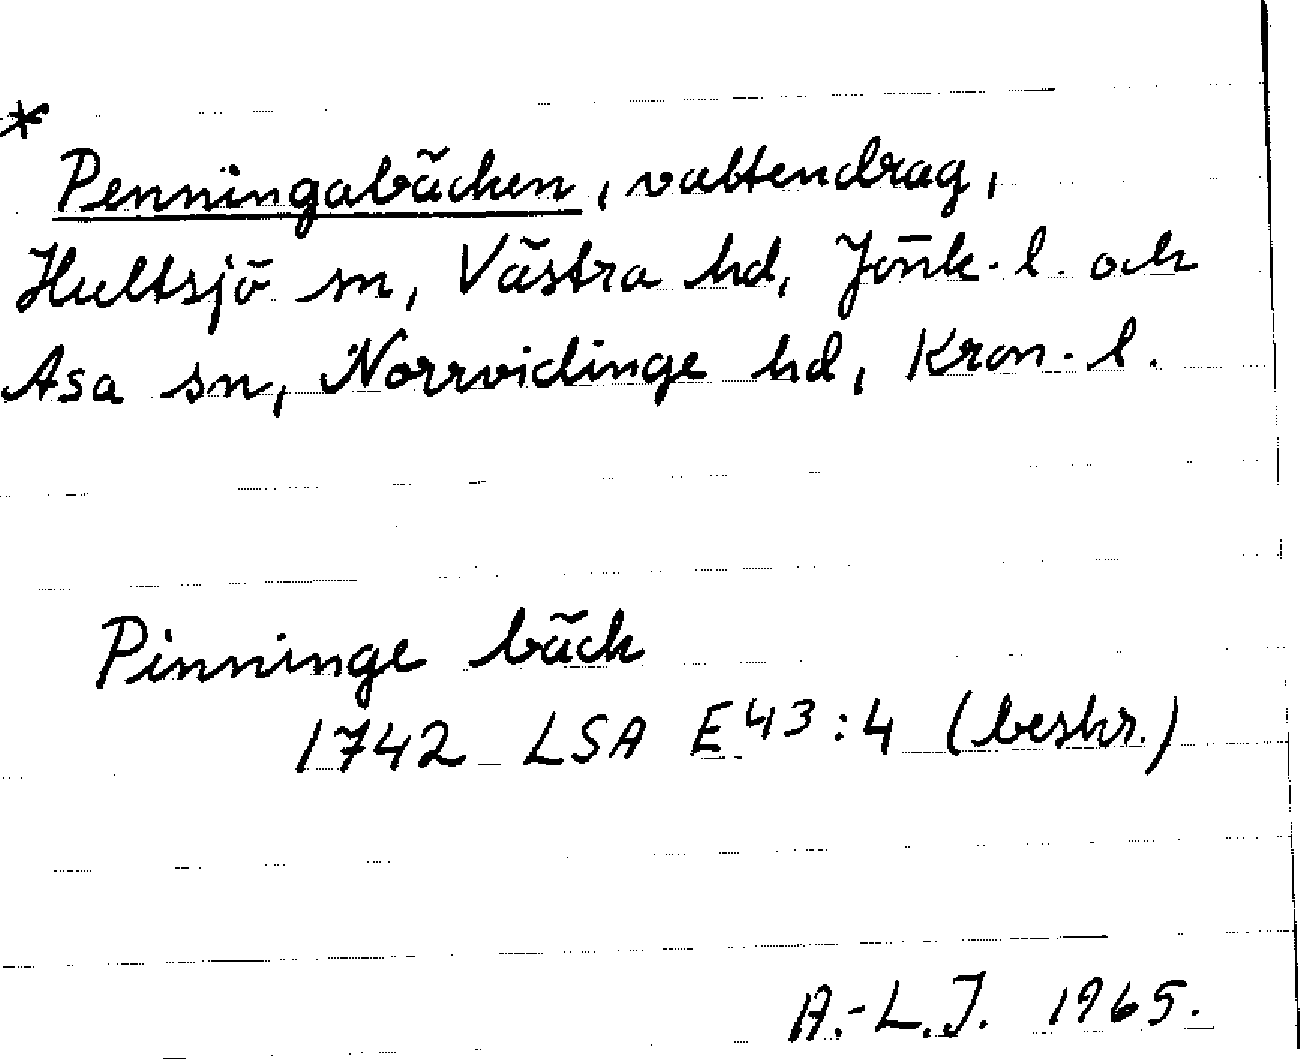 *
Penningabäcken, vattendrag,
Hultsjö sn, Västra hd, Jönk. l. och
Asa sn, Norrvidinge hd, Kron. l.
Pinninge bäck
1742 LSA E43:4 (beskr.)
A.-L.J. 1965.